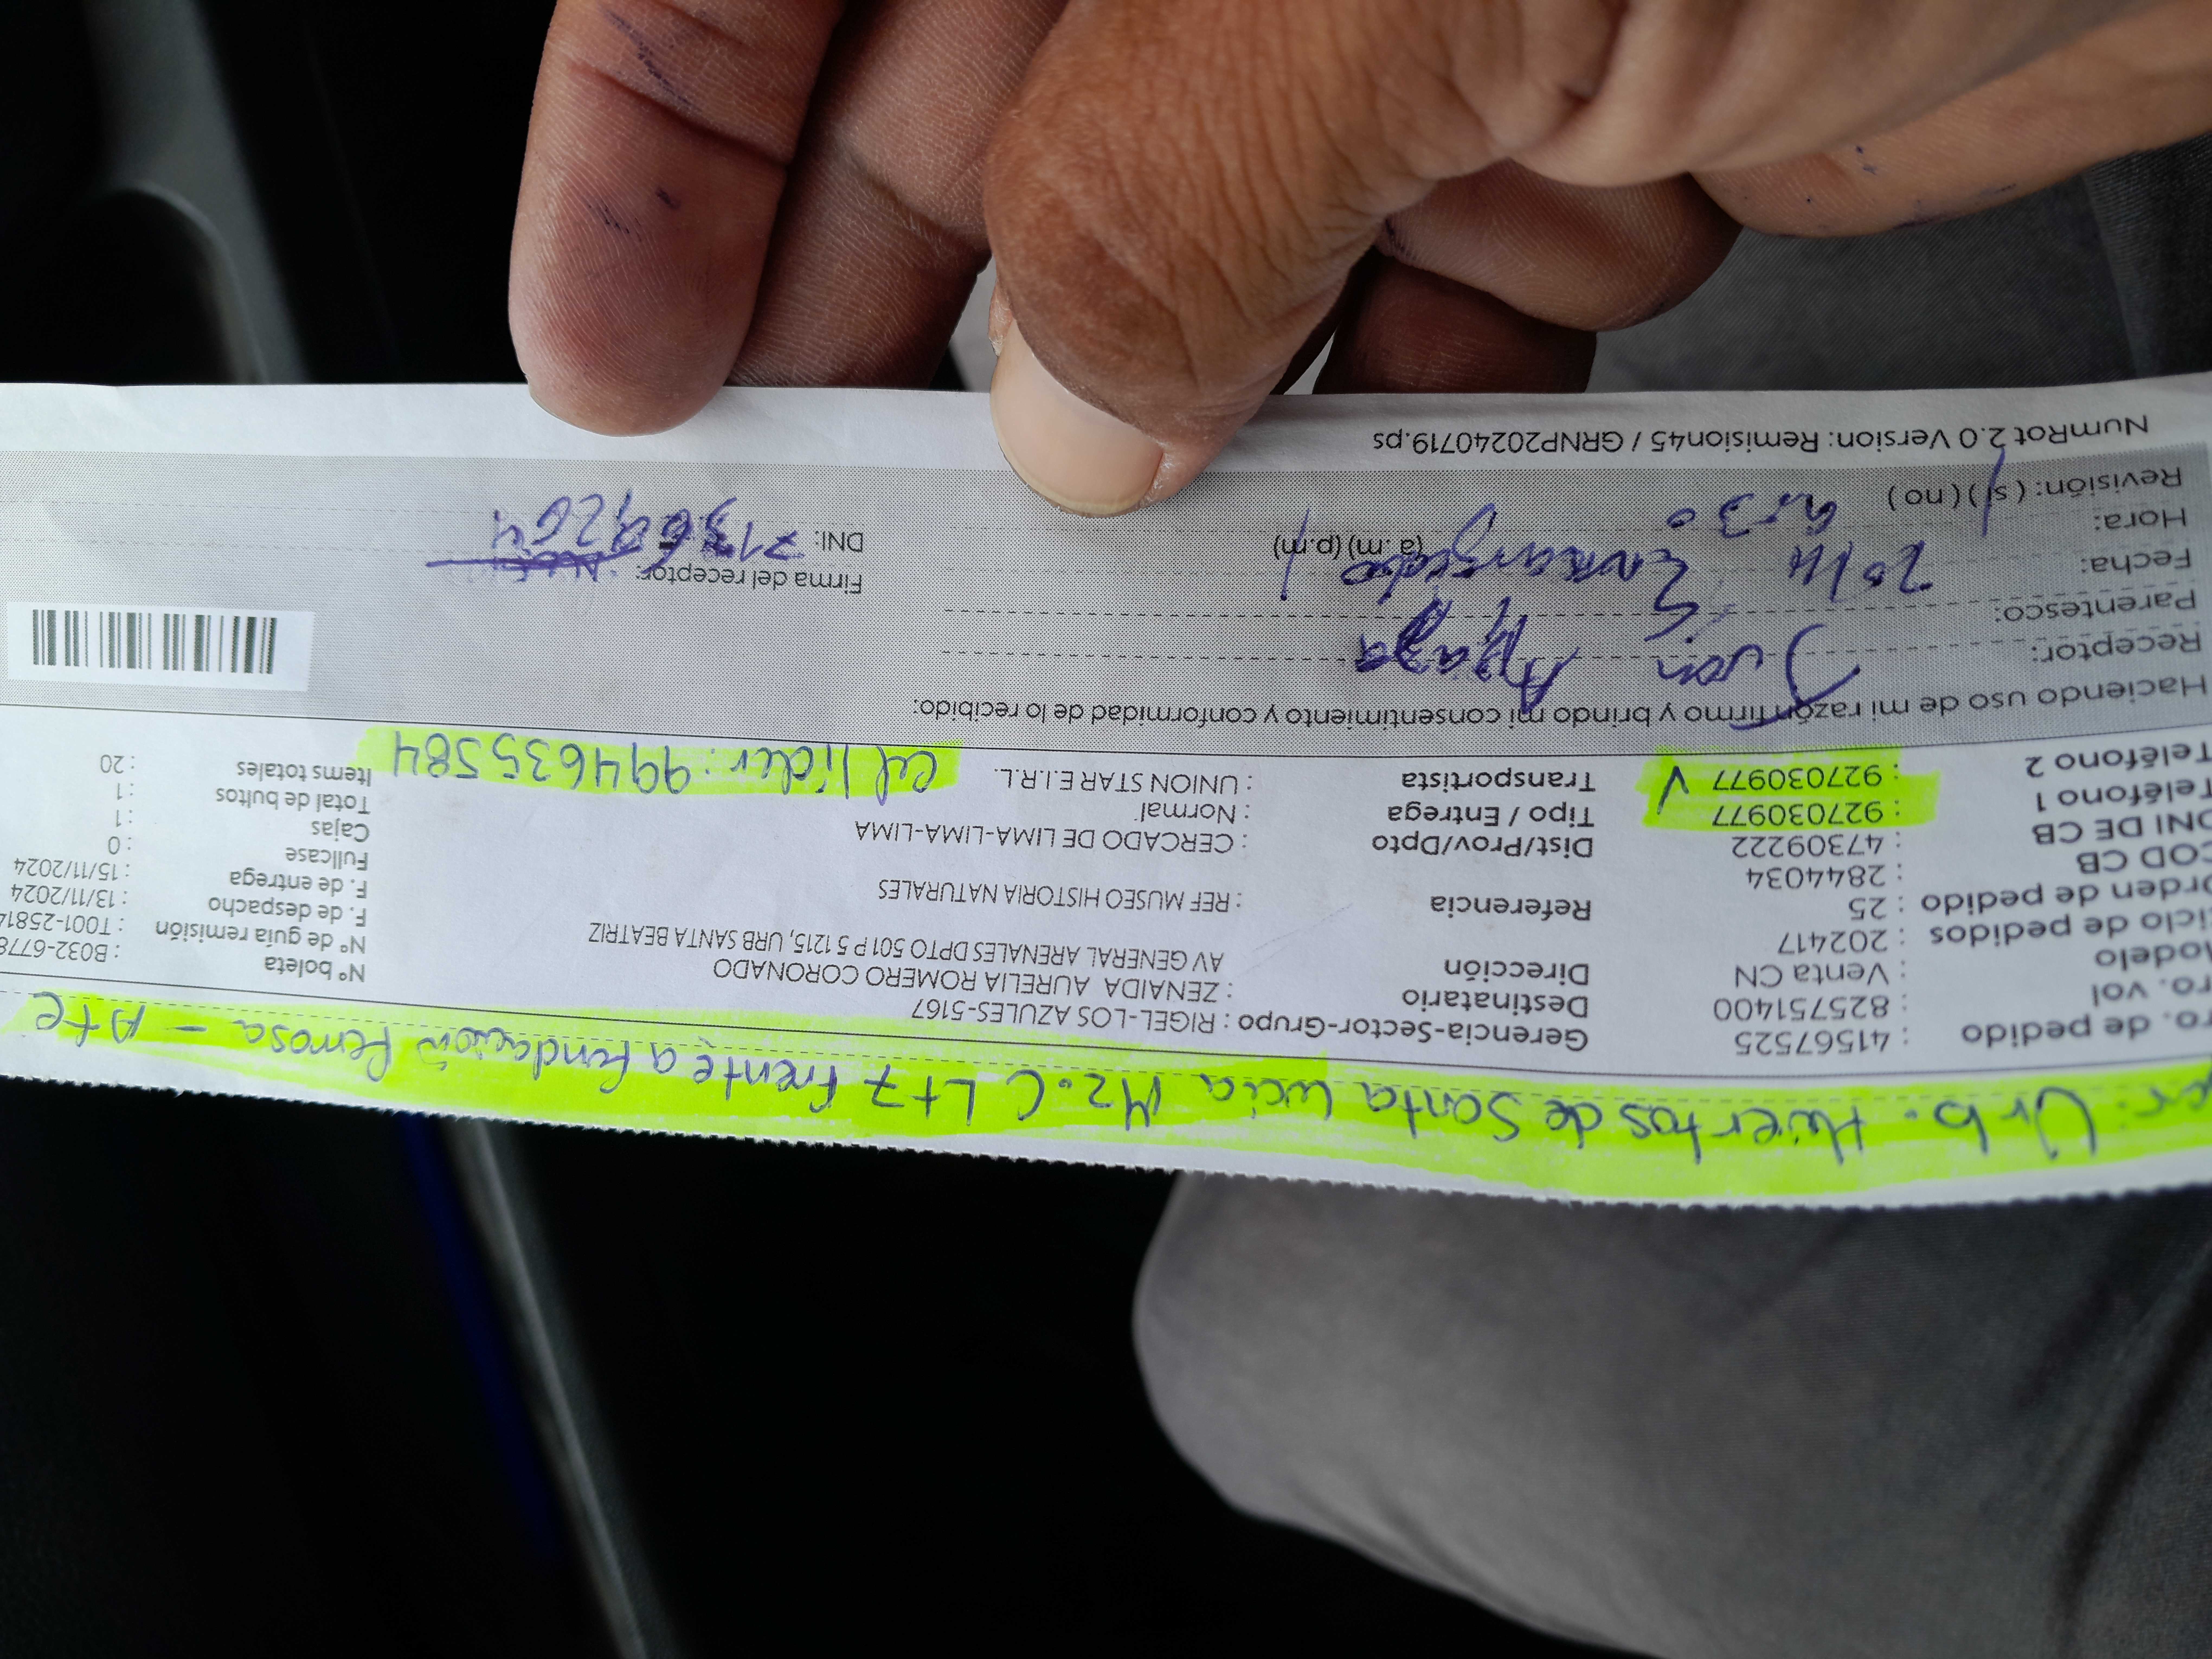 er: Urb. Huertos de Santa Lucia Mz. C Lt 7 frente a fundación ferrosa - Ate
ro. de pedido : 41567525
ro. vol : 825751400
Modelo : Venta CN
iclo de pedidos : 202417
rden de pedido : 25
COD CB : 2844034
DNI DE CB : 47309222
Teléfono 1 : 927030977
Teléfono 2 : 927030977 ✓
Gerencia-Sector-Grupo : RIGEL-LOS AZULES-5167
Destinatario : ZENAIDA AURELIA ROMERO CORONADO
Dirección AV GENERAL ARENALES DPTO 501 P 5 1215, URB SANTA BEATRIZ
Referencia : REF MUSEO HISTORIA NATURALES
Dist/Prov/Dpto : CERCADO DE LIMA-LIMA-LIMA
Tipo / Entrega : Normal
Transportista : UNION STAR E.I.R.L.
Cel líder: 994635584
N° boleta : B032-6778
N° de guia remisión : T001-25814
F. de despacho : 13/11/2024
F. de entrega : 15/11/2024
Fullcase : 0
Cajas : 1
Total de bultos : 1
Items totales : 20
Haciendo uso de mi razón firmo y brindo mi consentimiento y conformidad de lo recibido:
Receptor: Juan Apaza
Parentesco: Encargado
Fecha:
Hora: (a.m) (p.m)
Revisión: (si) (no)
Firma del receptor:
DNI:
NumRot 2.0 Version: Remision45 / GRNP20240719.ps